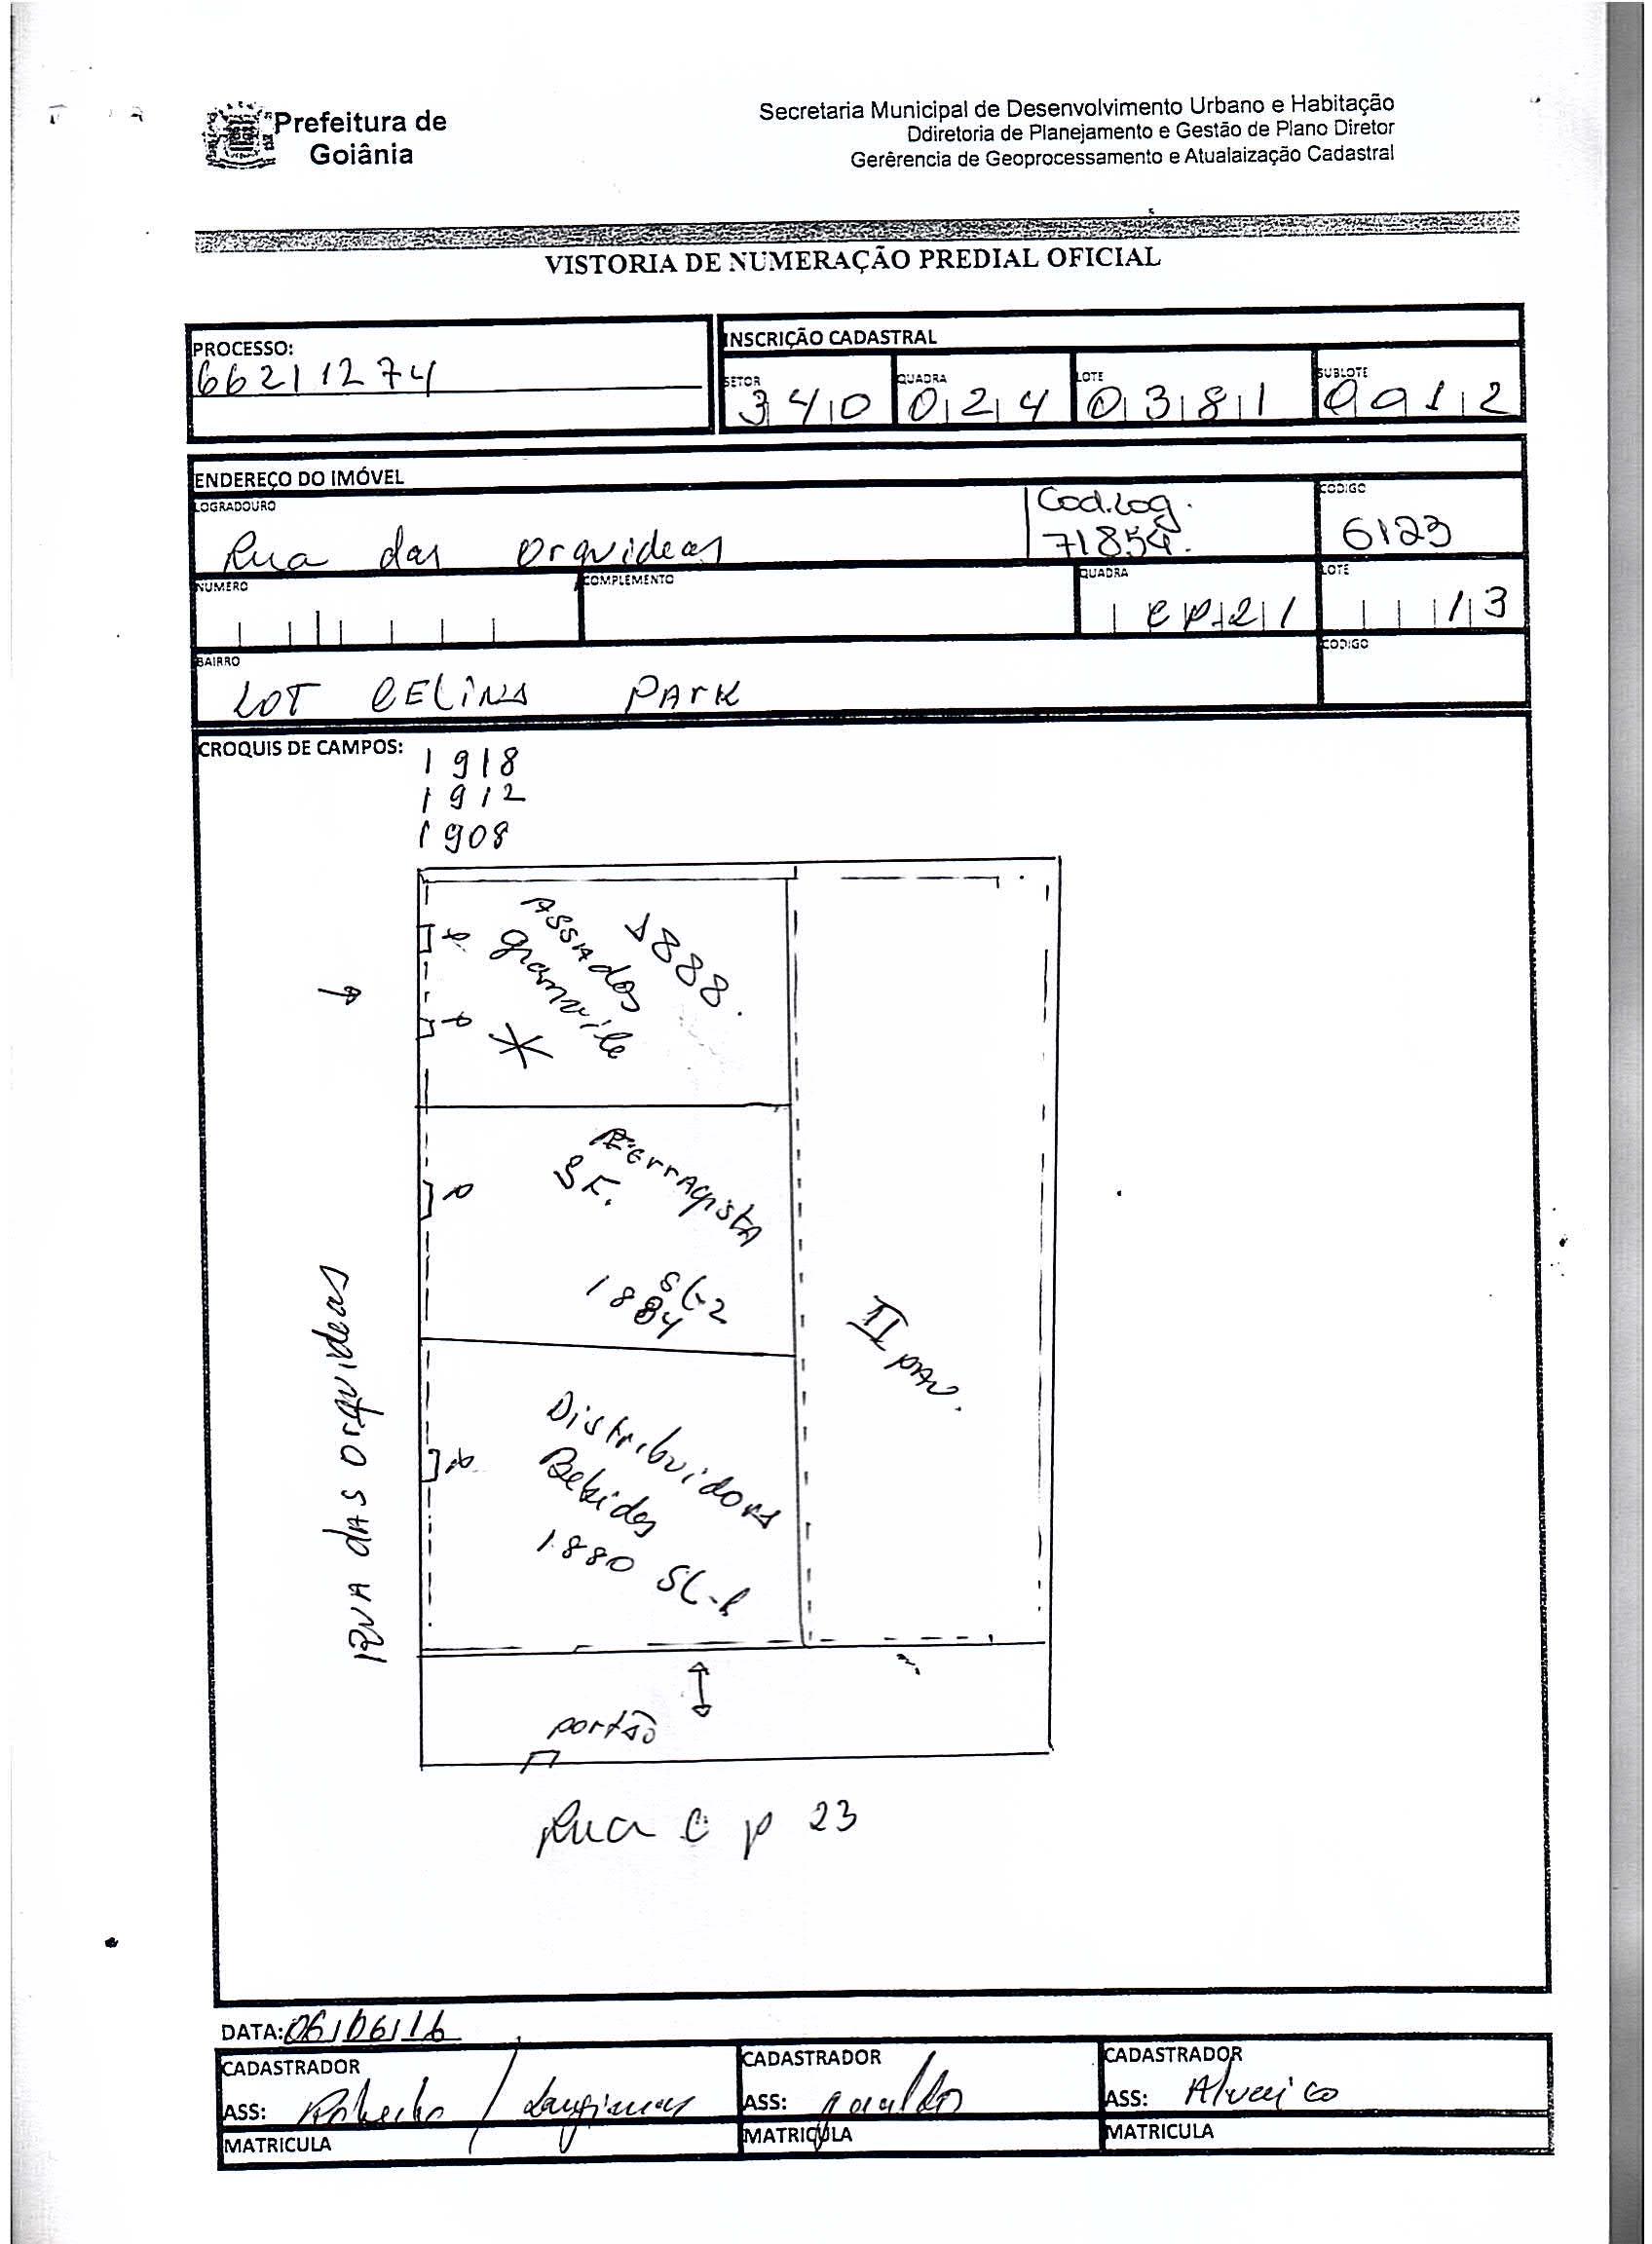 Prefeitura de
Goiânia
Secretaria Municipal de Desenvolvimento Urbano e Habitação
Ddiretoria de Planejamento e Gestão de Plano Diretor
Gerêrencia de Geoprocessamento e Atualaização Cadastral
VISTORIA DE NUMERAÇÃO PREDIAL OFICIAL
PROCESSO:
66211274
INSCRIÇÃO CADASTRAL
SETOR QUADRA LOTE SUBLOTE
340 024 0381 0012
ENDEREÇO DO IMÓVEL
LOGRADOURO Cod.Log. CODIGO
Rua das orquideas 71854. 6123
NUMERO COMPLEMENTO QUADRA LOTE
CP21 13
BAIRRO CODIGO
LOT CELINA PARK
CROQUIS DE CAMPOS:
1918
1912
1908
ASSADOS
granvile
1888.
Ferragista
SF.
SL-2
1884
Distribuidora
Bebidas
1880 SL-1
II PAV.
RUA DAS ORQUIDEAS
portão
Rua C P 23
DATA: 06/06/16
CADASTRADOR CADASTRADOR CADASTRADOR
ASS: Roberto / ASS: ASS:
MATRICULA MATRICULA MATRICULA